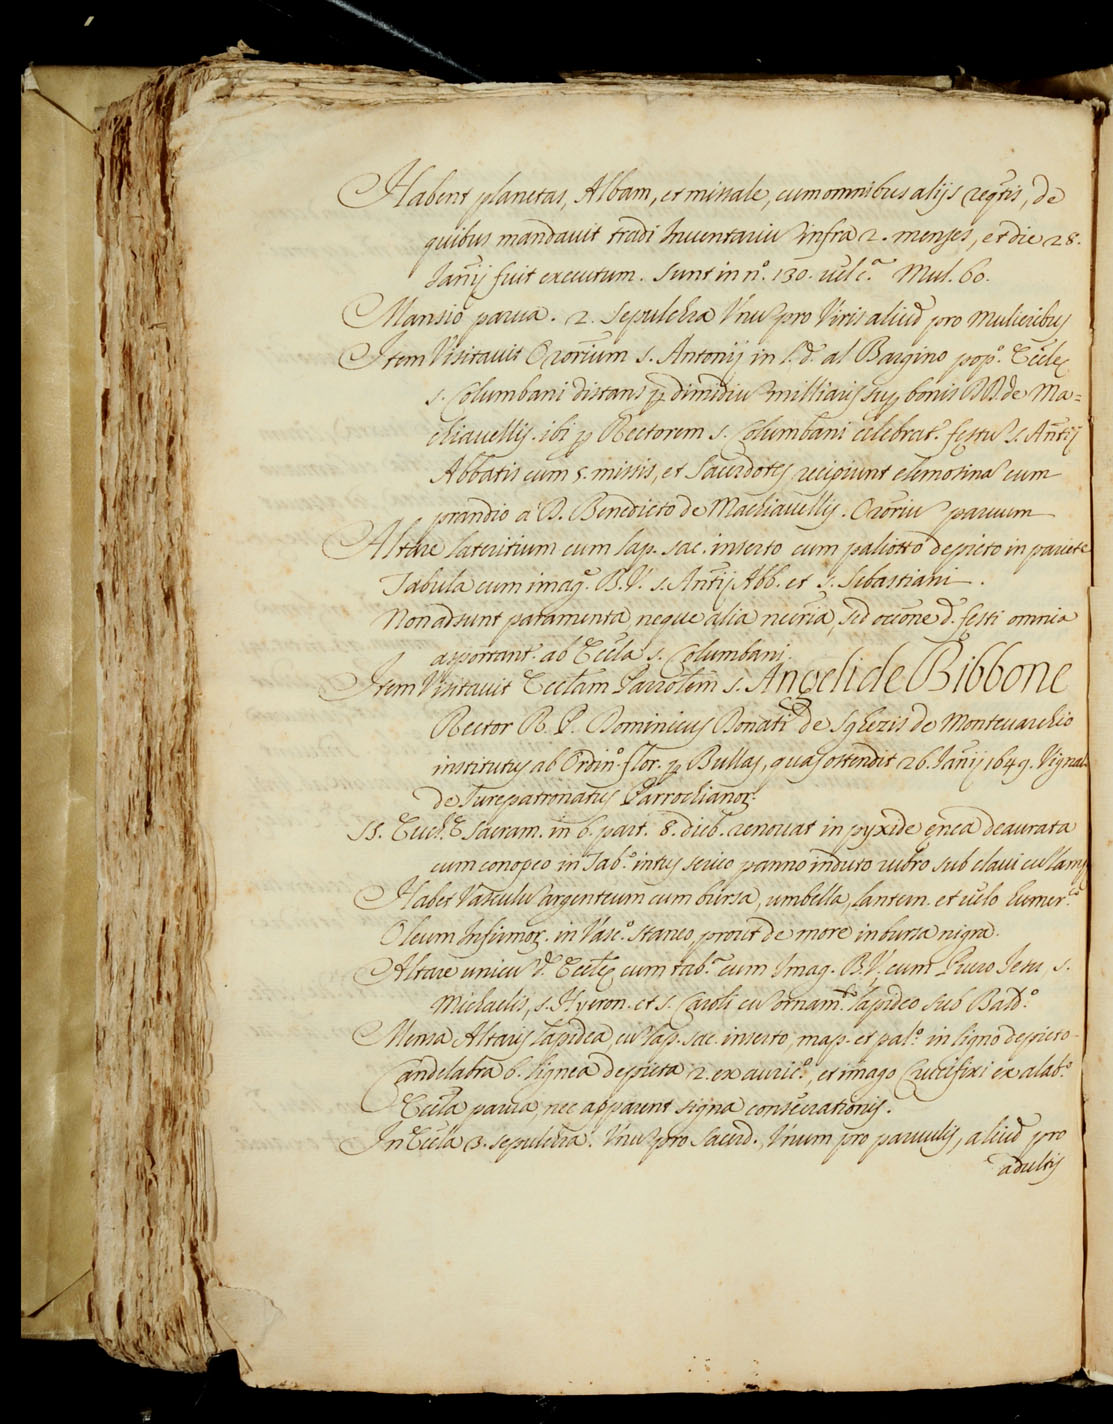 Habent planetas, Albam, et missale, cum omnibus alijs reqtis, de
quibus mandauit tradi Inuentariũ infra 2. menses, et die 28.
Janij fuit executum. sunt in nº. 130. uel cª. Mul. 60.
Mansio parua. 2. sepulchra Vnũ pro Viris aliud pro Mulieribus
Item Visitauit Orõrium s. Antonij in l.d. al Bargino popº. Eccle
s. Columbani distans p dimidiũ milliaris sup bonis DD. de Ma=
chiauellis. ibi p Rectorem s. Columbani celebrat. festũ s. Antij
Abbatis cum 5. missis, et Sacerdotes recipiunt elemosinã cum
prandio a D. Benedicto de Machiauellis. Orõriũ paruum
Altare lateritium cum lap. sac. inserto cum paliotto depicto in pariete
Tabula cum imag. B.V. s. Antij Abb. et s. Sebastiani.
Non adsunt paramenta, neque alia necria, sed occõne d. festi omnia
asportant. ab Eccla s. Columbani
Item Visitauit Ecclam Parrolem s. Angeli de Bibbone
Rector R. P. Dominicus Donati de Sghezis de Monteuarchio
institutus ab Ordinº. flor. p Bullas, quas ostendit 26. Janij 1649. Vignal.
de Jurepatronatus Parrochianor.
SS. Euch. Sacram. in 6. part. 8. dieb. renouat in pyxide enea deaurata
cum conopeo in Tabº. intus serico panno induto rubro sub claui cũ lamp
Habet Vasculũ argenteum cum bursa, umbella, lantern. et uelo humerª.
Oleum Infirmor. in Vascº. staneo prout de more in bursa nigra.
Altare unicũ d. Eccle cum tabª. cum Imag. B.V. cum Puero Jesu, s.
Michaelis, s. Hyeron. et s. Caroli cũ ornamtº. lapideo sub Baldº.
Mensa Altaris lapidea, cũ lap. sac. inserto, map. et palº. in ligno depicto.
Candelabra 6. lignea depicta 2. ex auricº., et imago Crucifixi ex alabº.
Eccla parua, nec apparent signa consecrationis.
In Eccla 3. sepulchra. Vnũ pro Sacerd. Vnum pro paruulis, aliud pro
adultis